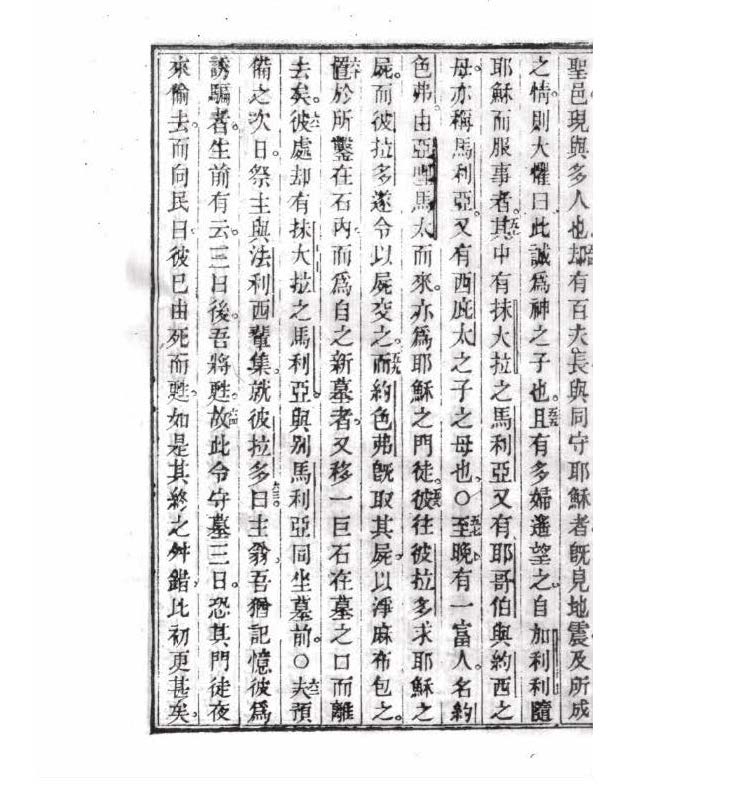 聖邑現與多人也却有百夫長與同守耶穌者旣見地震及所成
之情則大懼曰此誠爲神之子也。且有多婦遙望之。自加利利隨
耶穌而服事者。其中有抹大拉之馬利亞又有耶哥伯與約西之
母。亦稱馬利亞。又有西庇太之子之母也。〇至晚有一富人。名約
色弗。由亞馬太而來。亦爲耶穌之門徒。彼往彼拉多求耶穌之
屍。而彼拉多遂令以屍交之。而約色弗旣取其屍。以淨麻布包之。
置於所鑿在石內而爲自之新墓者。又移一巨石在墓之口而離
去矣。彼處却有抹大拉之馬利亞。與別馬利亞同坐墓前。〇夫預
備之次日。祭主與法利西輩集。就彼拉多曰。主翁。吾猶記憶彼爲
誘騙者。生前有云。三日後。吾將甦。故此令守墓三日。恐其門徒夜
來偷去。而向民曰彼已由死而甦。如是其終之舛錯。比初更甚矣。